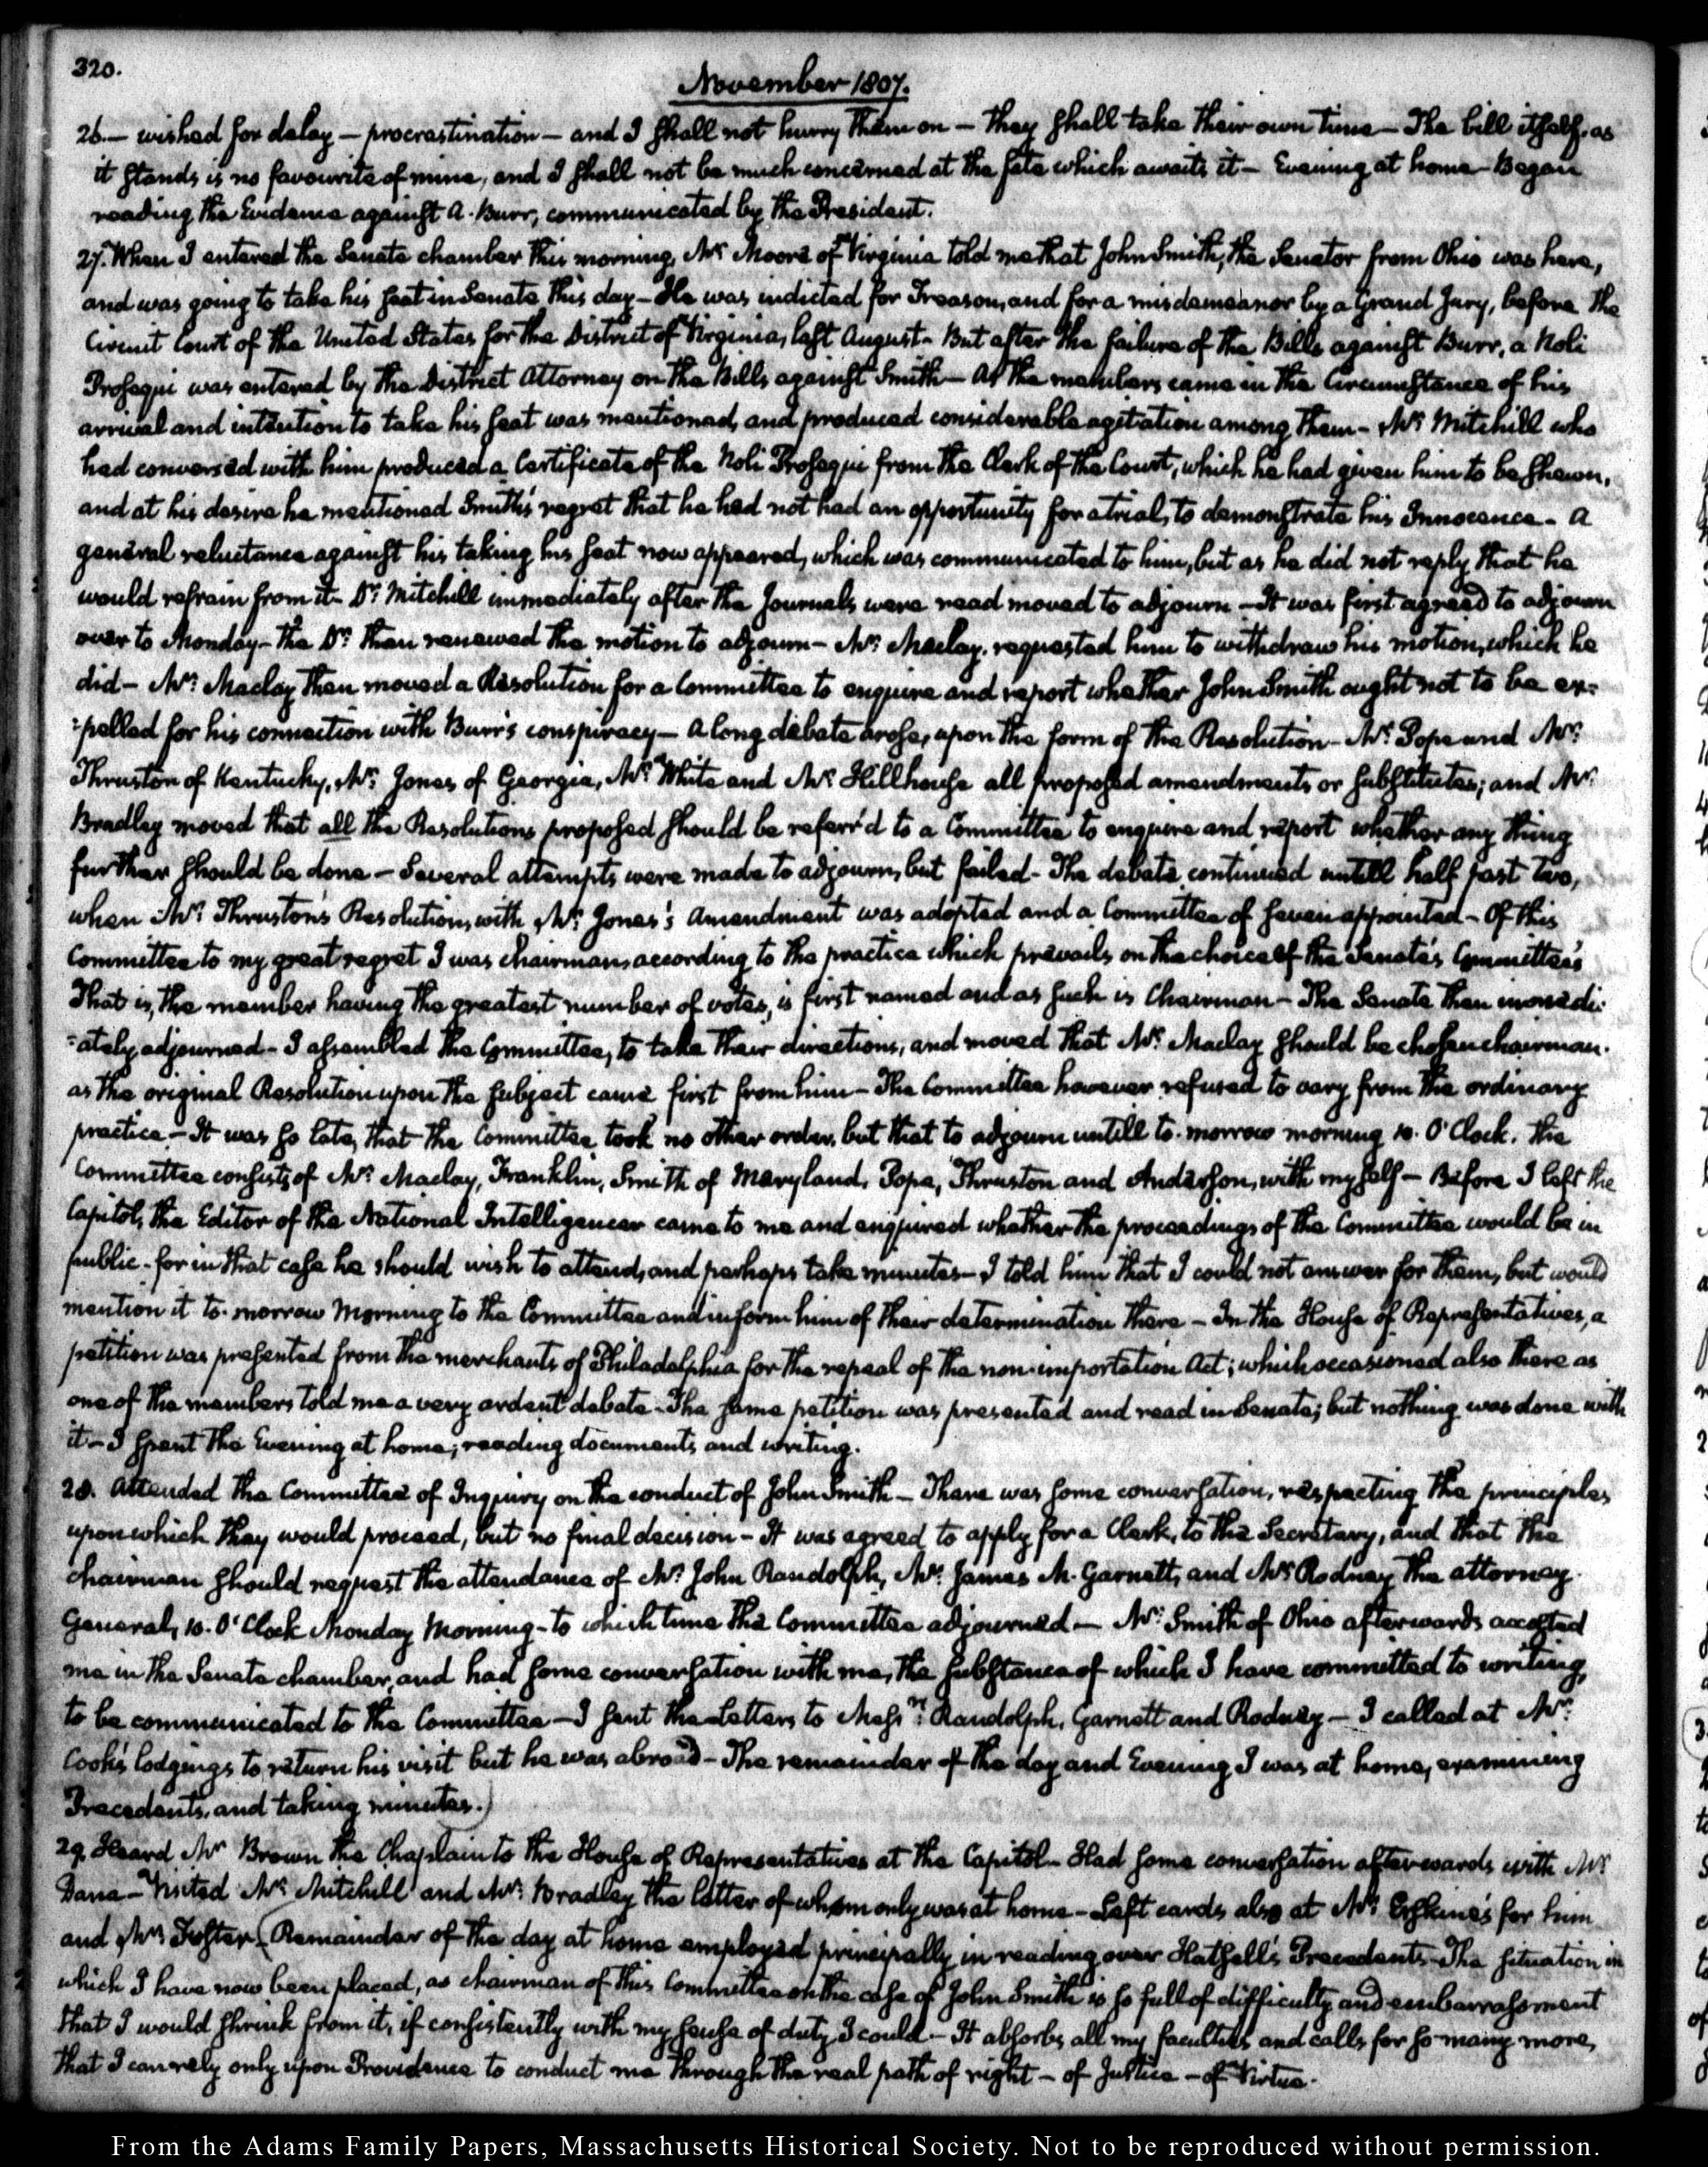 320.
November 1807.
26.— wished for delay — procrastination — and I shall not hurry them on — They shall take their own time — The bill itself, as
it stands is no favourite of mine, and I shall not be much concerned at the fate which awaits it — Evening at home — Began
reading the Evidence against A. Burr, communicated by the President.
27. When I entered the Senate chamber this morning, Mr. Moore of Virginia told me that John Smith, the Senator from Ohio was here,
and was going to take his seat in Senate this day — He was indicted for Treason, and for a misdemeanor by a Grand Jury, before the
Circuit Court of the United States for the District of Virginia, last August — But after the failure of the Bills against Burr, a Noli
Prosequi was entered by the District Attorney on the Bills against Smith — As the members came in the Circumstance of his
arrival and intention to take his seat was mentioned, and produced considerable agitation among them — Mr. Mitchill who
had conversed with him produced a Certificate of the Noli Prosequi from the Clerk of the Court, which he had given him to be shewn,
and at his desire he mentioned Smith's regret that he had not had an opportunity for a trial, to demonstrate his Innocence — A
general reluctance against his taking his seat now appeared, which was communicated to him, but as he did not reply that he
would refrain from it — Dr. Mitchill immediately after the Journals were read moved to adjourn — It was first agreed to adjourn
over to Monday — The Dr. then renewed the motion to adjourn — Mr. Maclay requested him to withdraw his motion, which he
did — Mr. Maclay then moved a Resolution for a Committee to enquire and report whether John Smith ought not to be ex-
-pelled for his connection with Burr's conspiracy — A long debate arose, upon the form of the Resolution — Mr. Pope and Mr.
Thruston of Kentucky, Mr. Jones of Georgia, Mr. White and Mr. Hillhouse all proposed amendments or substitutes; and Mr.
Bradley moved that all the Resolutions proposed should be referr'd to a Committee to enquire and report whether any thing
further should be done — Several attempts were made to adjourn, but failed — The debate continued untill half past two,
when Mr. Thruston's Resolution, with Mr. Jones's Amendment was adopted and a Committee of seven appointed — Of this
Committee to my great regret I was chairman, according to the practice which prevails on the choice of the Senate's Committees
That is, the member having the greatest number of votes, is first named and as such is Chairman — The Senate then immedi-
-ately adjourned — I assembled the Committee, to take their directions, and moved that Mr. Maclay should be chosen chairman.
as the original Resolution upon the subject came first from him — The Committee however refused to vary from the ordinary
practice — It was so late, that the Committee took no other order, but that to adjourn untill to-morrow morning 10. O'Clock. The
Committee consists of Mr. Maclay, Franklin, Smith of Maryland, Pope, Thruston and Anderson, with myself — Before I left the
Capitol, the Editor of the National Intelligencer came to me and enquired whether the proceedings of the Committee would be in
public — for in that case he should wish to attend, and perhaps take minutes — I told him that I could not answer for them, but would
mention it to-morrow Morning to the Committee and inform him of their determination there — In the House of Representatives, a
petition was presented from the merchants of Philadelphia for the repeal of the non-importation Act; which occasioned also there as
one of the members told me a very ardent debate — The same petition was presented and read in Senate; but nothing was done with
it — I spent the Evening at home; reading documents and writing.
28. Attended the Committee of Inquiry on the conduct of John Smith — There was some conversation, respecting the principles
upon which they would proceed, but no final decision — It was agreed to apply for a Clerk, to the Secretary, and that the
chairman should request the attendance of Mr. John Randolph, Mr. James M. Garnett, and Mr. Rodney the attorney
General, 10. O'Clock Monday Morning — to which time the Committee adjourned — Mr. Smith of Ohio afterwards accosted
me in the Senate chamber, and had some conversation with me, the substance of which I have committed to writing,
to be communicated to the Committee — I sent the Letters to Messrs. Randolph, Garnett and Rodney — I called at Mr.
Cook's lodgings to return his visit but he was abroad — The remainder of the day and Evening I was at home, examining
Precedents, and taking minutes.)
29. Heard Mr Brown the Chaplain to the House of Representatives at the Capitol — Had some conversation afterwards with Mr
Dana — Visited Mr. Mitchill and Mr. Bradley the latter of whom only was at home — Left cards also at Mr. Erskine's for him
and Mr. Foster (Remainder of the day at home employed principally in reading over Hatsell's Precedents — The situation in
which I have now been placed, as chairman of this Committee on the case of John Smith is so full of difficulty and embarrassment
that I would shrink from it, if consistently with my sense of duty I could — It absorbs all my faculties and calls for so many more,
that I can rely only upon Providence to conduct me through the real path of right — of Justice — of Virtue.
From the Adams Family Papers, Massachusetts Historical Society. Not to be reproduced without permission.